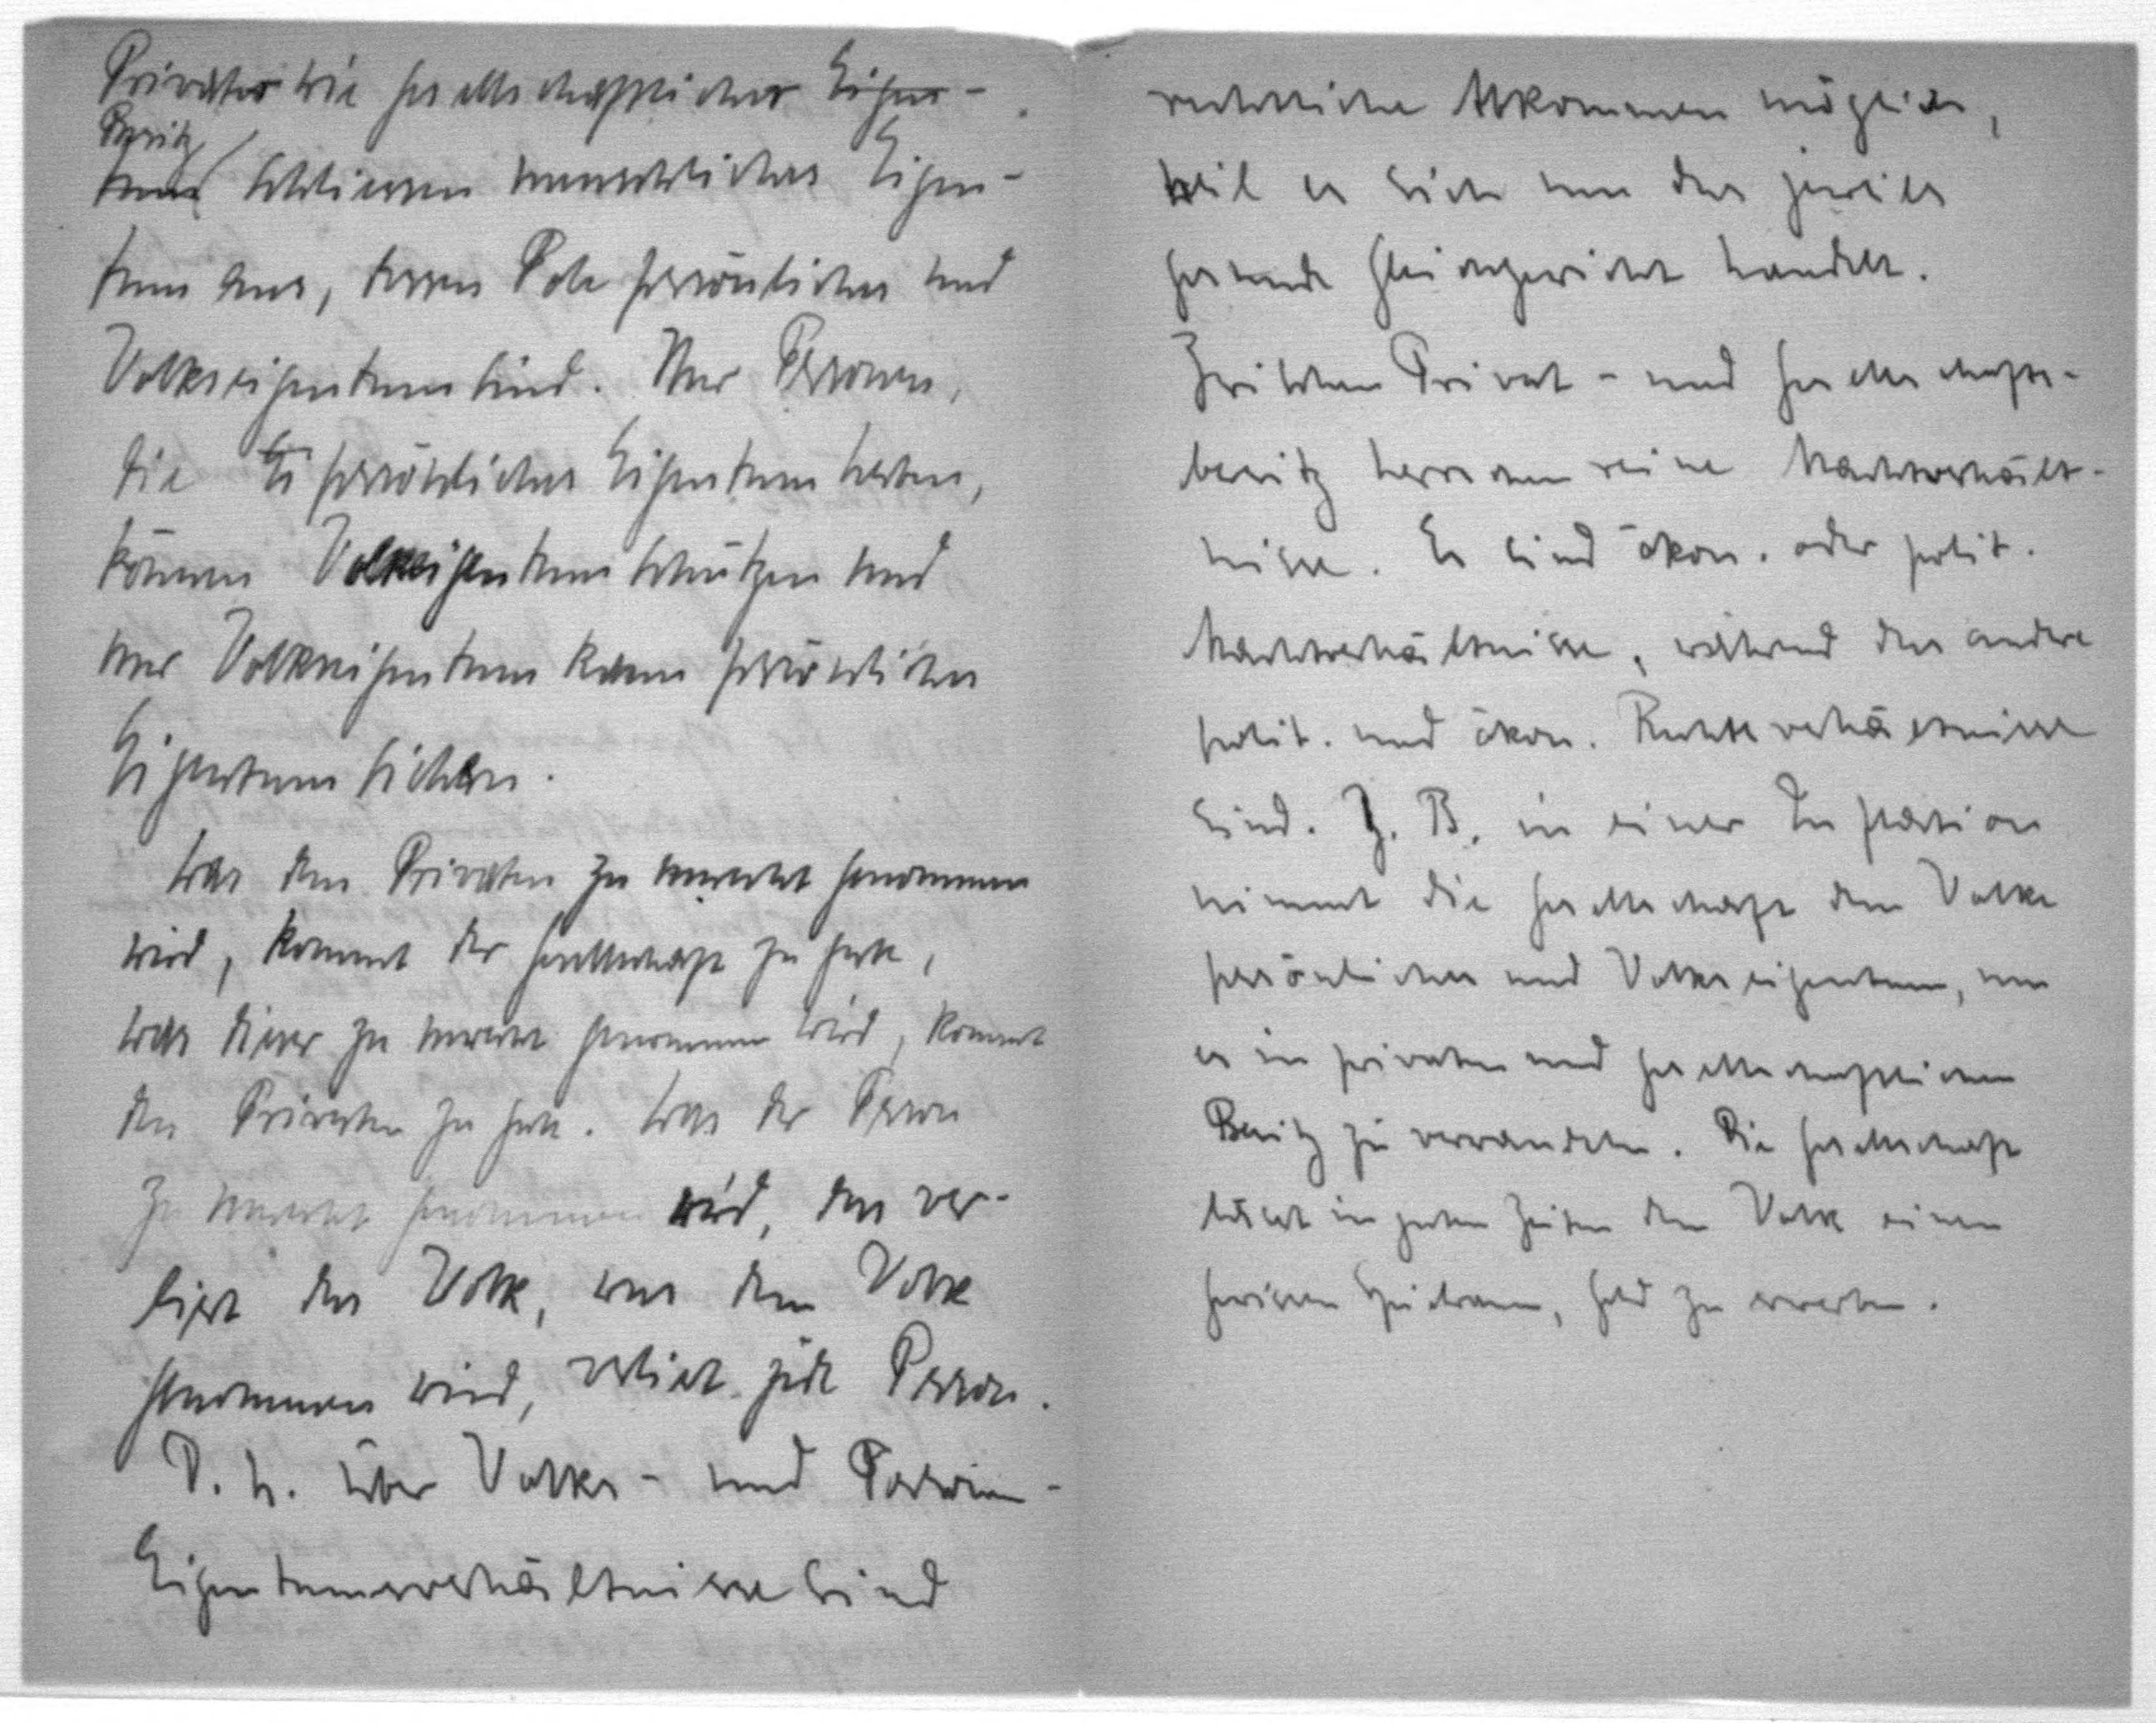 Privater wie gesellschaftlicher Eigen-
Besitz
tum schliessen menschliches Eigen-
tum aus, dessen Pole persönliches und
Volkseigentum sind. Nur Personen,
die persönliches Eigentum haben,
können Volkseigentum schützen und
nur Volkseigentum kann persönliches
Eigentum sichern.
Was den Privaten zu unrecht genommen
wird, kommt der Gesellschaft zu gute,
was dieser zu unrecht genommen wird, kommt
den Privaten zu gute. Was der Person
zu unrecht genommen wird, das ver-
liert das Volk, was dem Volk
genommen wird, verliert jede Person.
D. h. über Volks- und Person-
Eigentumsverhältnisse sind
rechtliche Abkommen möglich,
weil es sich um das jeweils
gesunde Gleichgewicht handelt.
Zwischen Privat- und Gesellschafts-
besitz herrschen reine Machtverhält-
nisse. Es sind ökon. oder polit.
Machtverhältnisse, während das andere
polit. und ökon. Rechtsverhältnisse
sind. Z. B. in einer Inflation
nimmt die Gesellschaft dem Volke
persönliches und Volkseigentum, um
es in privaten und gesellschaftlichen
Besitz zu verwandeln. Die Gesellschaft
lässt in guten Zeiten dem Volk einen
gewissen Spielraum, Geld zu erwerben.